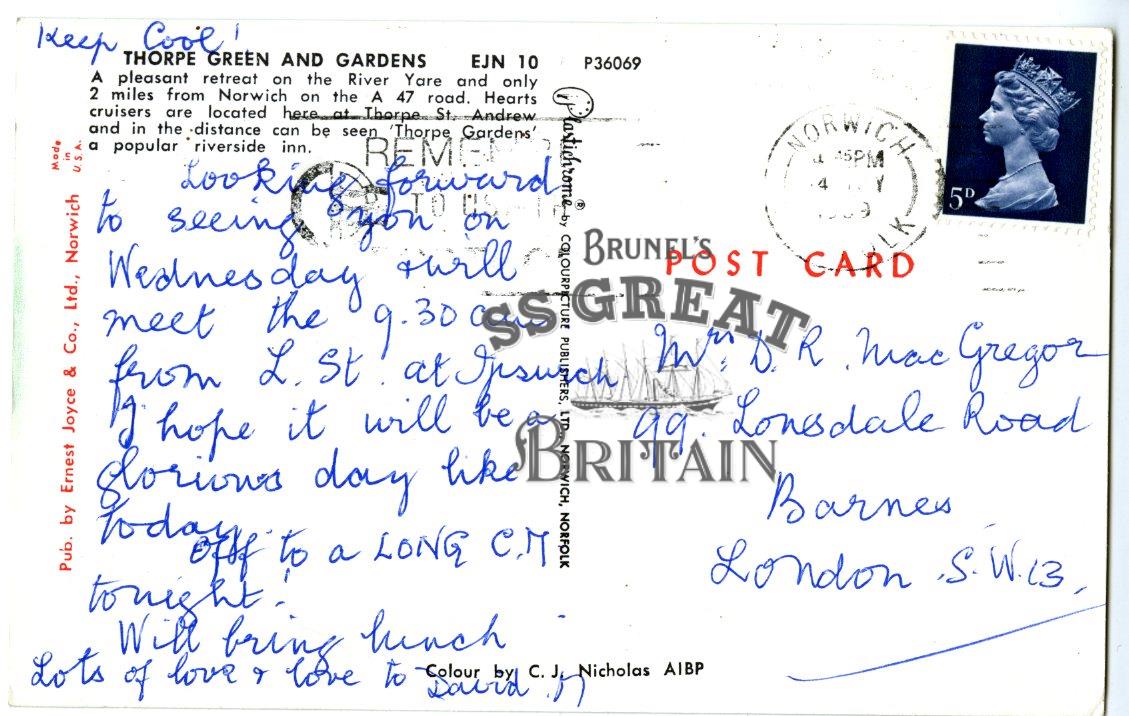 Keep Cool!
THORPE GREEN AND GARDENS EJN 10 P36069
A pleasant retreat on the River Yare and only
2 miles from Norwich on the A 47 road. Hearts
cruisers are located here at Thorpe St. Andrew
and in the distance can be seen 'Thorpe Gardens'
a popular riverside inn.
Looking forward
to seeing you on
Wednesday & will
meet the 9.30 am
from L. St. at Ipswich
I hope it will be a
glorious day like
today.
Off to a LONG C.M
tonight!
Will bring lunch
Lots of love & love to David. M
Colour by C. J. Nicholas AIBP
Made in U.S.A.
Pub. by Ernest Joyce & Co., Ltd., Norwich
Plastichrome ® by COLOURPICTURE PUBLISHERS, LTD. NORWICH, NORFOLK
TO
NORWICH
PM
4
5D
POST CARD
BRUNEL'S
SS GREAT
BRITAIN
Mrs D. R. MacGregor
99. Lonsdale Road
Barnes
London S.W.13.